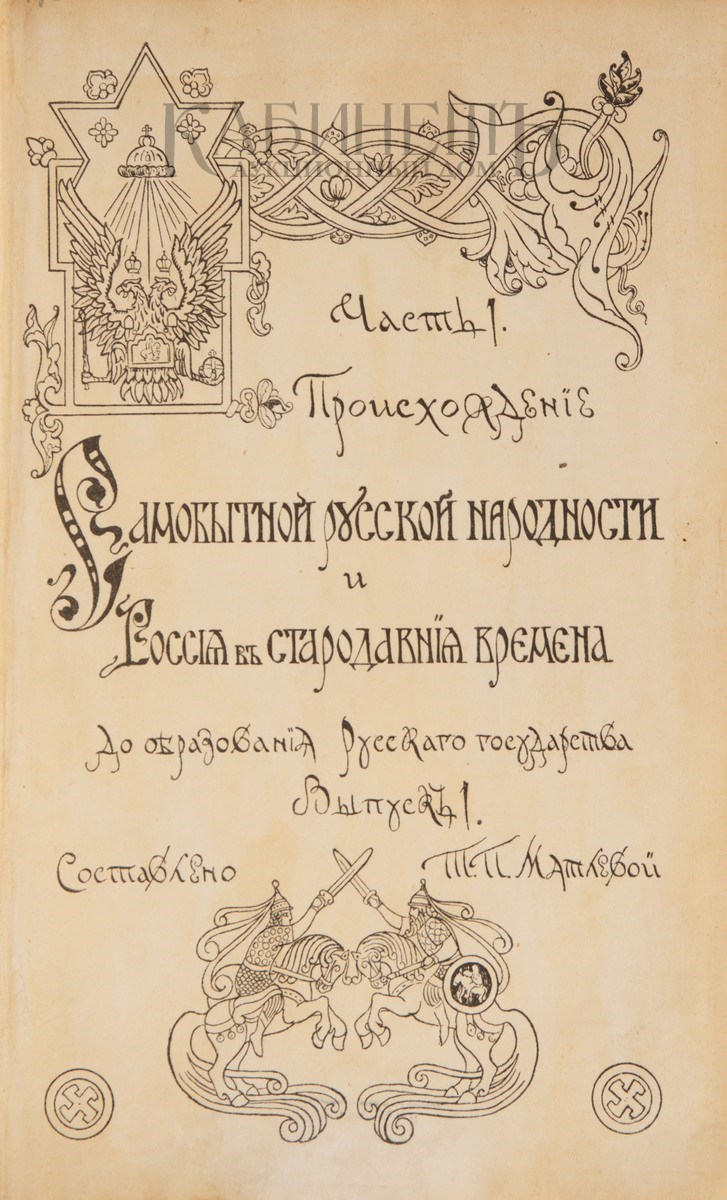 КАБИНЕТЪ
АУКЦИОННЫЙ ДОМ
Часть I.
Происхожденіе
Самобытной русской народности
и
Россія въ стародавнія времена
До образованія Русскаго государства
Выпускъ I.
Составлено Т.П. Матлевой